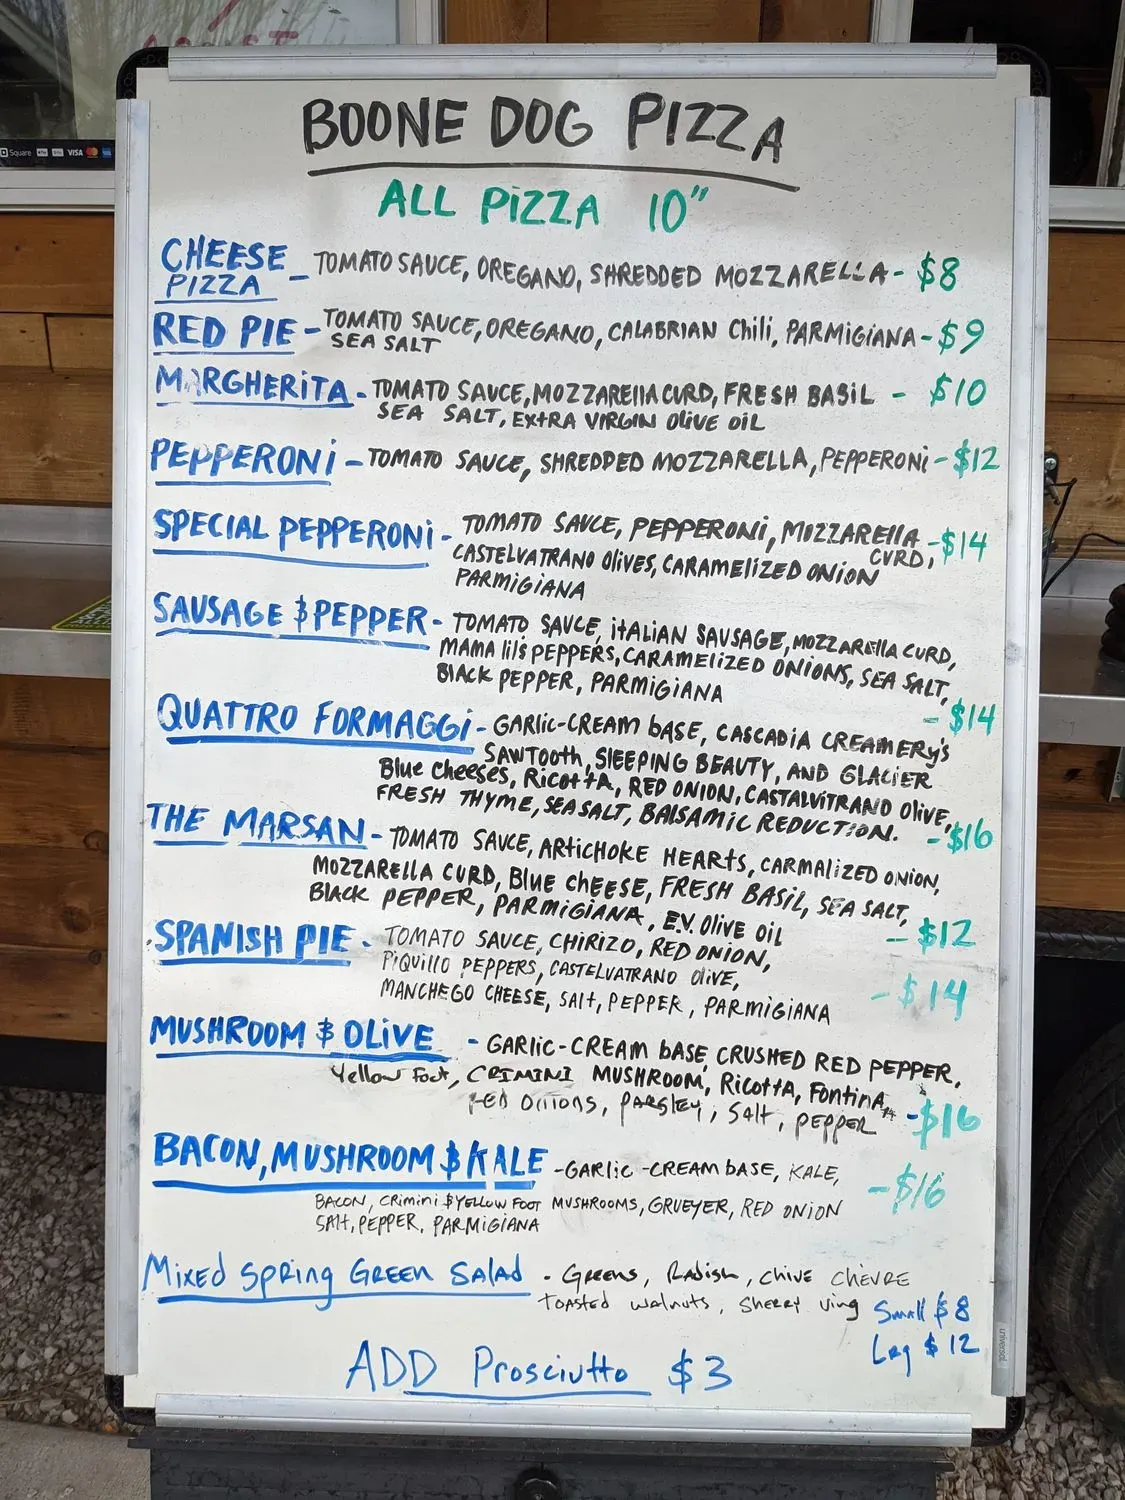 Square VISA
BOONE DOG PIZZA
ALL PIZZA 10"
CHEESE PIZZA - TOMATO SAUCE, OREGANO, SHREDDED MOZZARELLA - $8
RED PIE - TOMATO SAUCE, OREGANO, CALABRIAN Chili, PARMIGIANA - $9
SEA SALT
MARGHERITA - TOMATO SAUCE, MOZZARELLA CURD, FRESH BASIL - $10
SEA SALT, EXTRA VIRGIN OLIVE OIL
PEPPERONI - TOMATO SAUCE, SHREDDED MOZZARELLA, PEPPERONI - $12
SPECIAL PEPPERONI - TOMATO SAUCE, PEPPERONI, MOZZARELLA CURD, - $14
CASTELVATRANO OLIVES, CARAMELIZED ONION
PARMIGIANA
SAUSAGE & PEPPER - TOMATO SAUCE, ITALIAN SAUSAGE, MOZZARELLA CURD,
MAMA lil's PEPPERS, CARAMELIZED ONIONS, SEA SALT,
BLACK PEPPER, PARMIGIANA - $14
QUATTRO FORMAGGI - GARLIC-CREAM BASE, CASCADIA CREAMERY'S
SAWTOOTH, SLEEPING BEAUTY, AND GLACIER
Blue Cheeses, Ricotta, RED ONION, CASTALVITRANO Olive,
FRESH THYME, SEA SALT, BALSAMIC REDUCTION. - $16
THE MARSAN - TOMATO SAUCE, ARTICHOKE HEARTS, CARMALIZED ONION,
MOZZARELLA CURD, Blue Cheese, FRESH BASIL, SEA SALT,
BLACK PEPPER, PARMIGIANA, E.V. Olive OIL - $12
SPANISH PIE - TOMATO SAUCE, CHIRIZO, RED ONION,
PIQUILLO PEPPERS, CASTELVATRANO OLIVE,
MANCHEGO CHEESE, SALT, PEPPER, PARMIGIANA - $14
MUSHROOM & OLIVE - GARLIC-CREAM BASE, CRUSHED RED PEPPER,
Yellow Foot, CRIMINI MUSHROOM, Ricotta, Fontina,
RED ONIONS, PARSLEY, SALT, PEPPER - $16
BACON, MUSHROOM & KALE - GARLIC-CREAM BASE, KALE, - $16
BACON, CRIMINI & YELLOW FOOT MUSHROOMS, GRUEYER, RED ONION
SALT, PEPPER, PARMIGIANA
Mixed Spring Green Salad - Greens, Radish, Chive CHEVRE
Toasted walnuts, Sherry Ving Small $8
Lrg $12
ADD Prosciutto $3
universal